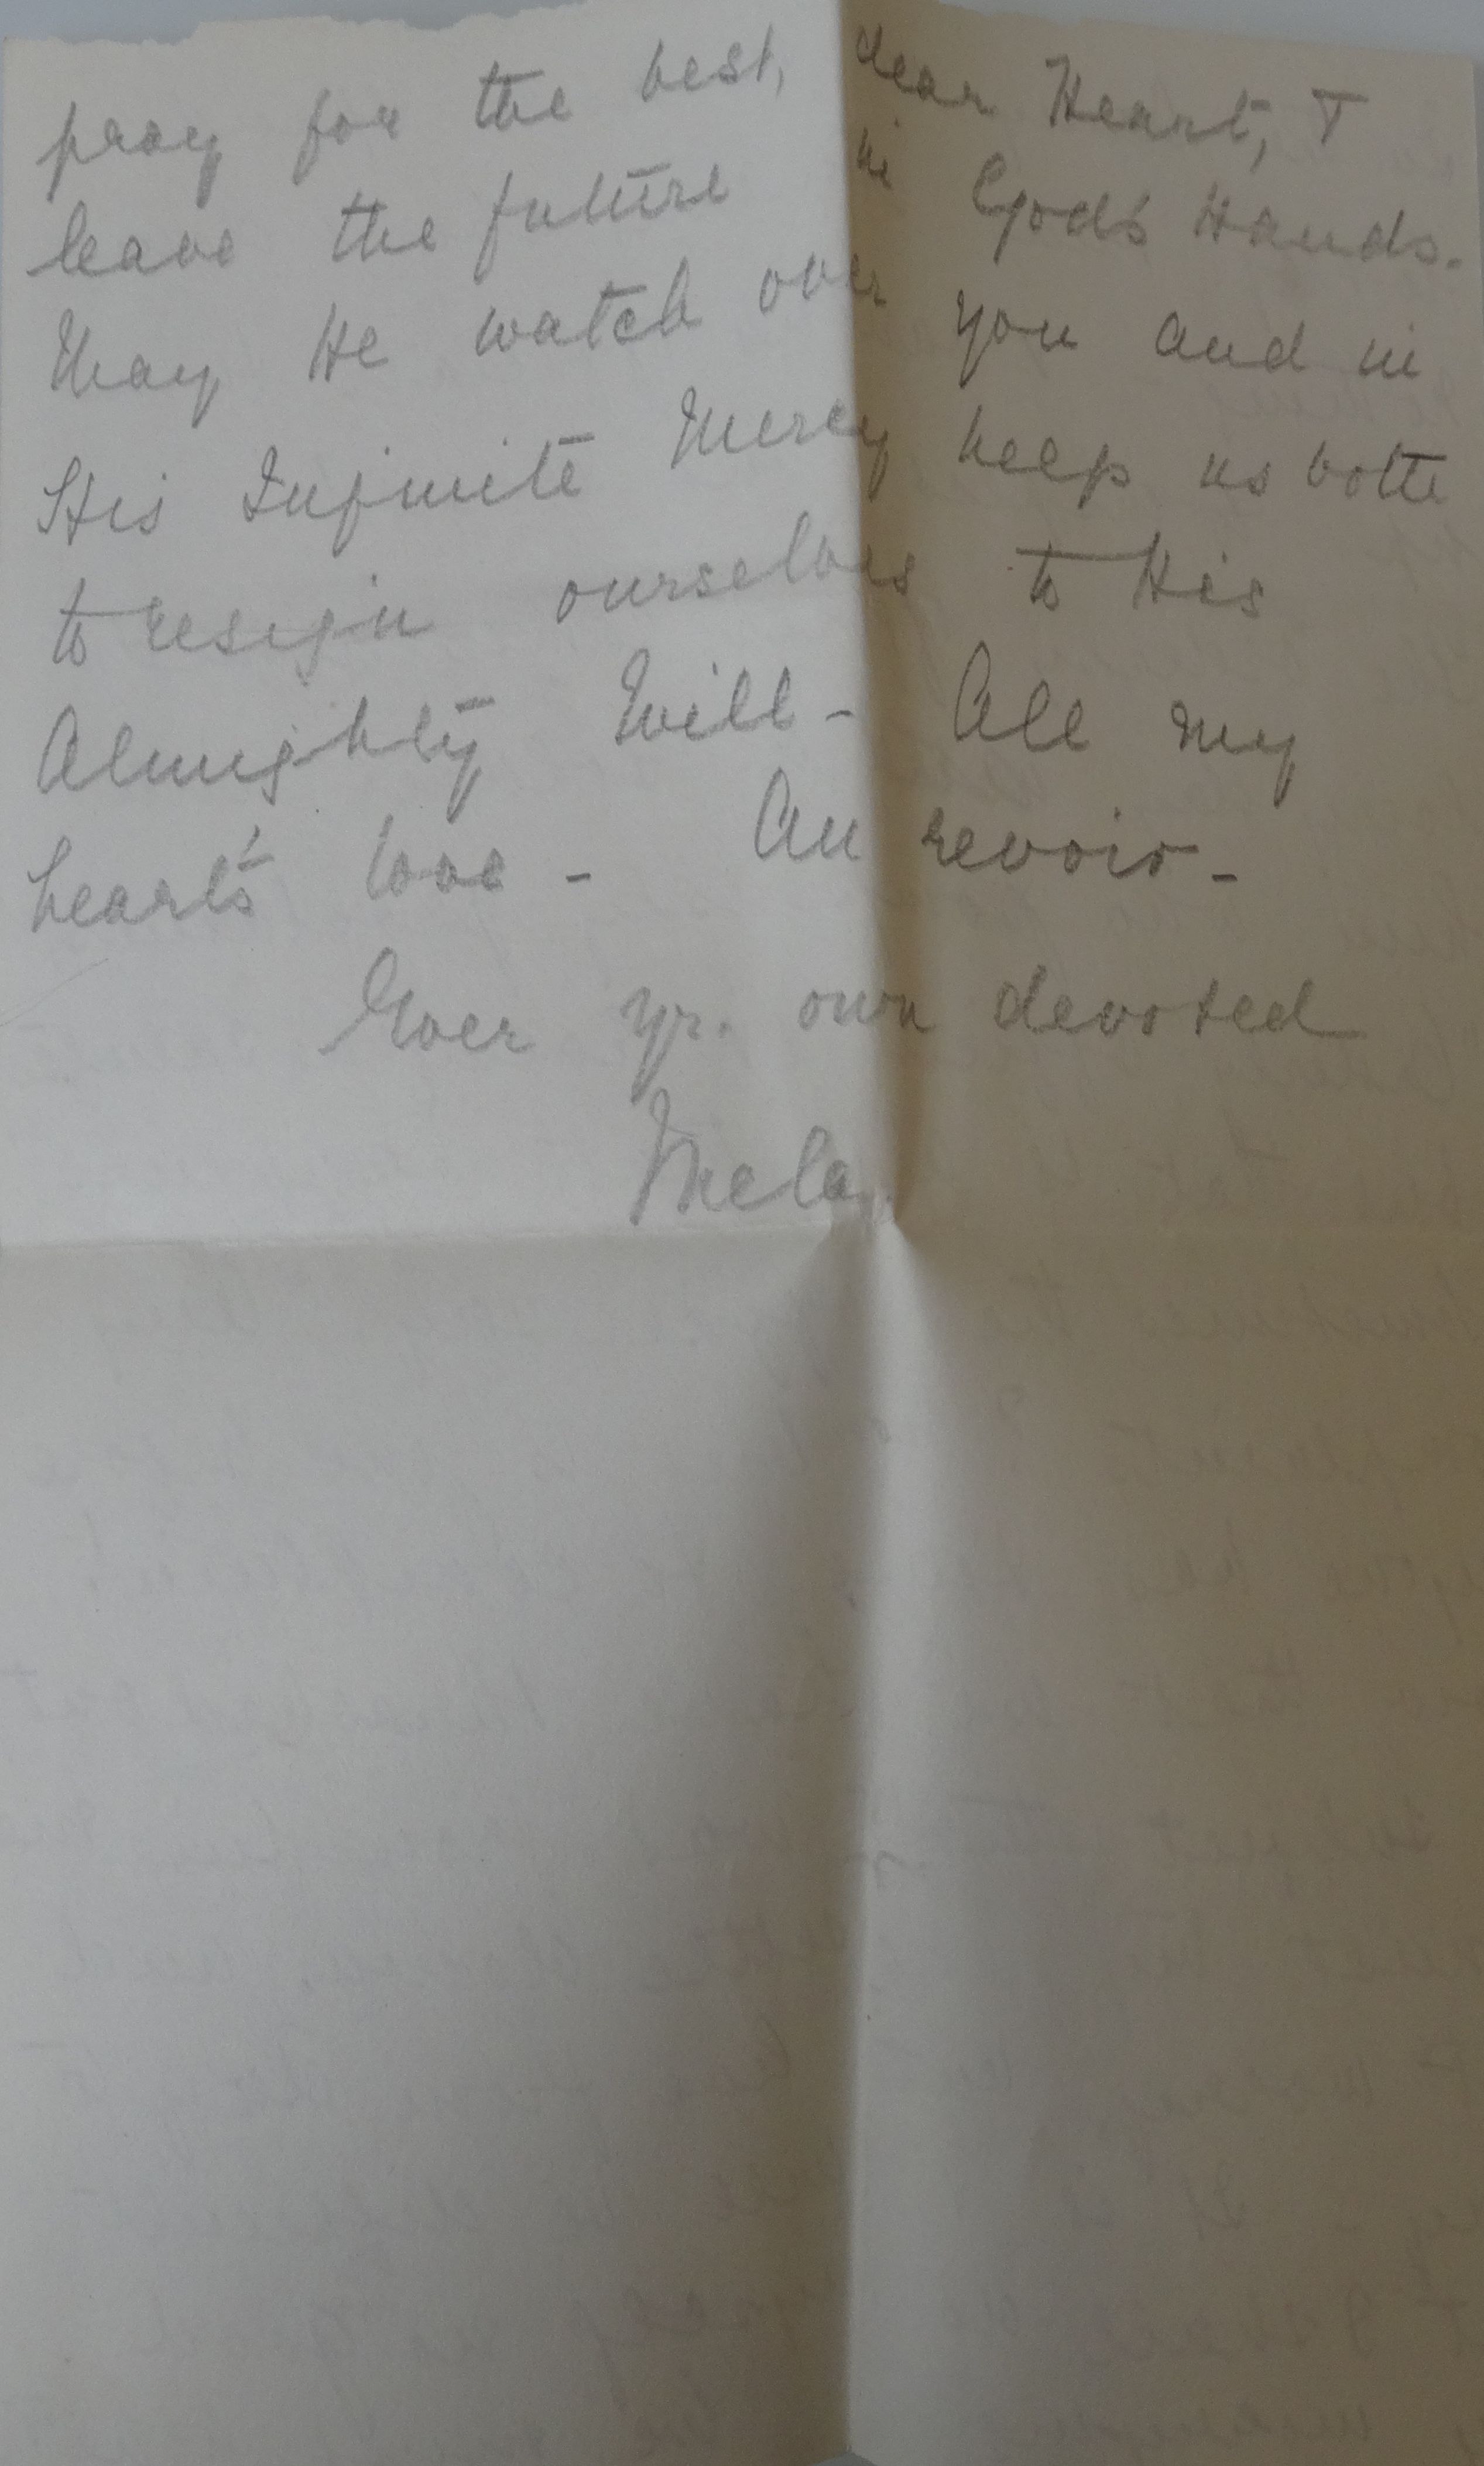 pray for the best, dear Heart, +
leave the future in God's Hands.
May He watch over you and in
His Infinite Mercy help us both
to resign ourselves to His
Almighty Will - All my
heart's love - Au revoir -
Ever yr. own devoted
Mela.